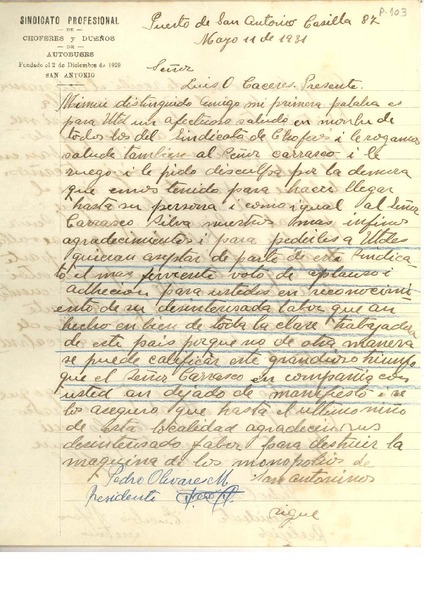 P-103
SINDICATO PROFESIONAL
DE
CHOFERES Y DUEÑOS
DE
AUTOBUSES
Fundado el 2 de Diciembre de 1929
SAN ANTONIO
Puerto de San Antonio Casilla 82
Mayo 11 de 1931
Señor
Luis O Caceres. Presente.
Mi muy distinguido amigo mi primera palabra es
para Ud un afectuoso saludo en nombre de
todos los del Sindicato de Chofers i le rogamos
salude tambien al Señor Carrasco i le
ruego i le pido desculpa por la demora
que emos tenido para hacer llegar
hasta su persona i como igual al Señor
Carrasco Silva nuestros mas infinos
agradecimientos i para pedirles a Uds
quieran aseptar de parte de este Sindica
to el mas ferviente voto de aplauso i
adhecion para ustedes en reconocimi
ento de su desinteresada labor que an
hecho en bien de toda la clase trabajadora
de este pais porque no de otra manera
se puede calificar este grandioso triumfo
que el Señor Carrasco en compañia con
usted an dejado de manifesto i se
los aseguro que hasta el ultimo niño
de esta localidad agradecen sus
desinteresado labor para destruir la
maquina de los monopolios de
San Antoninos
Pedro Olivares M
Presidente
sigue